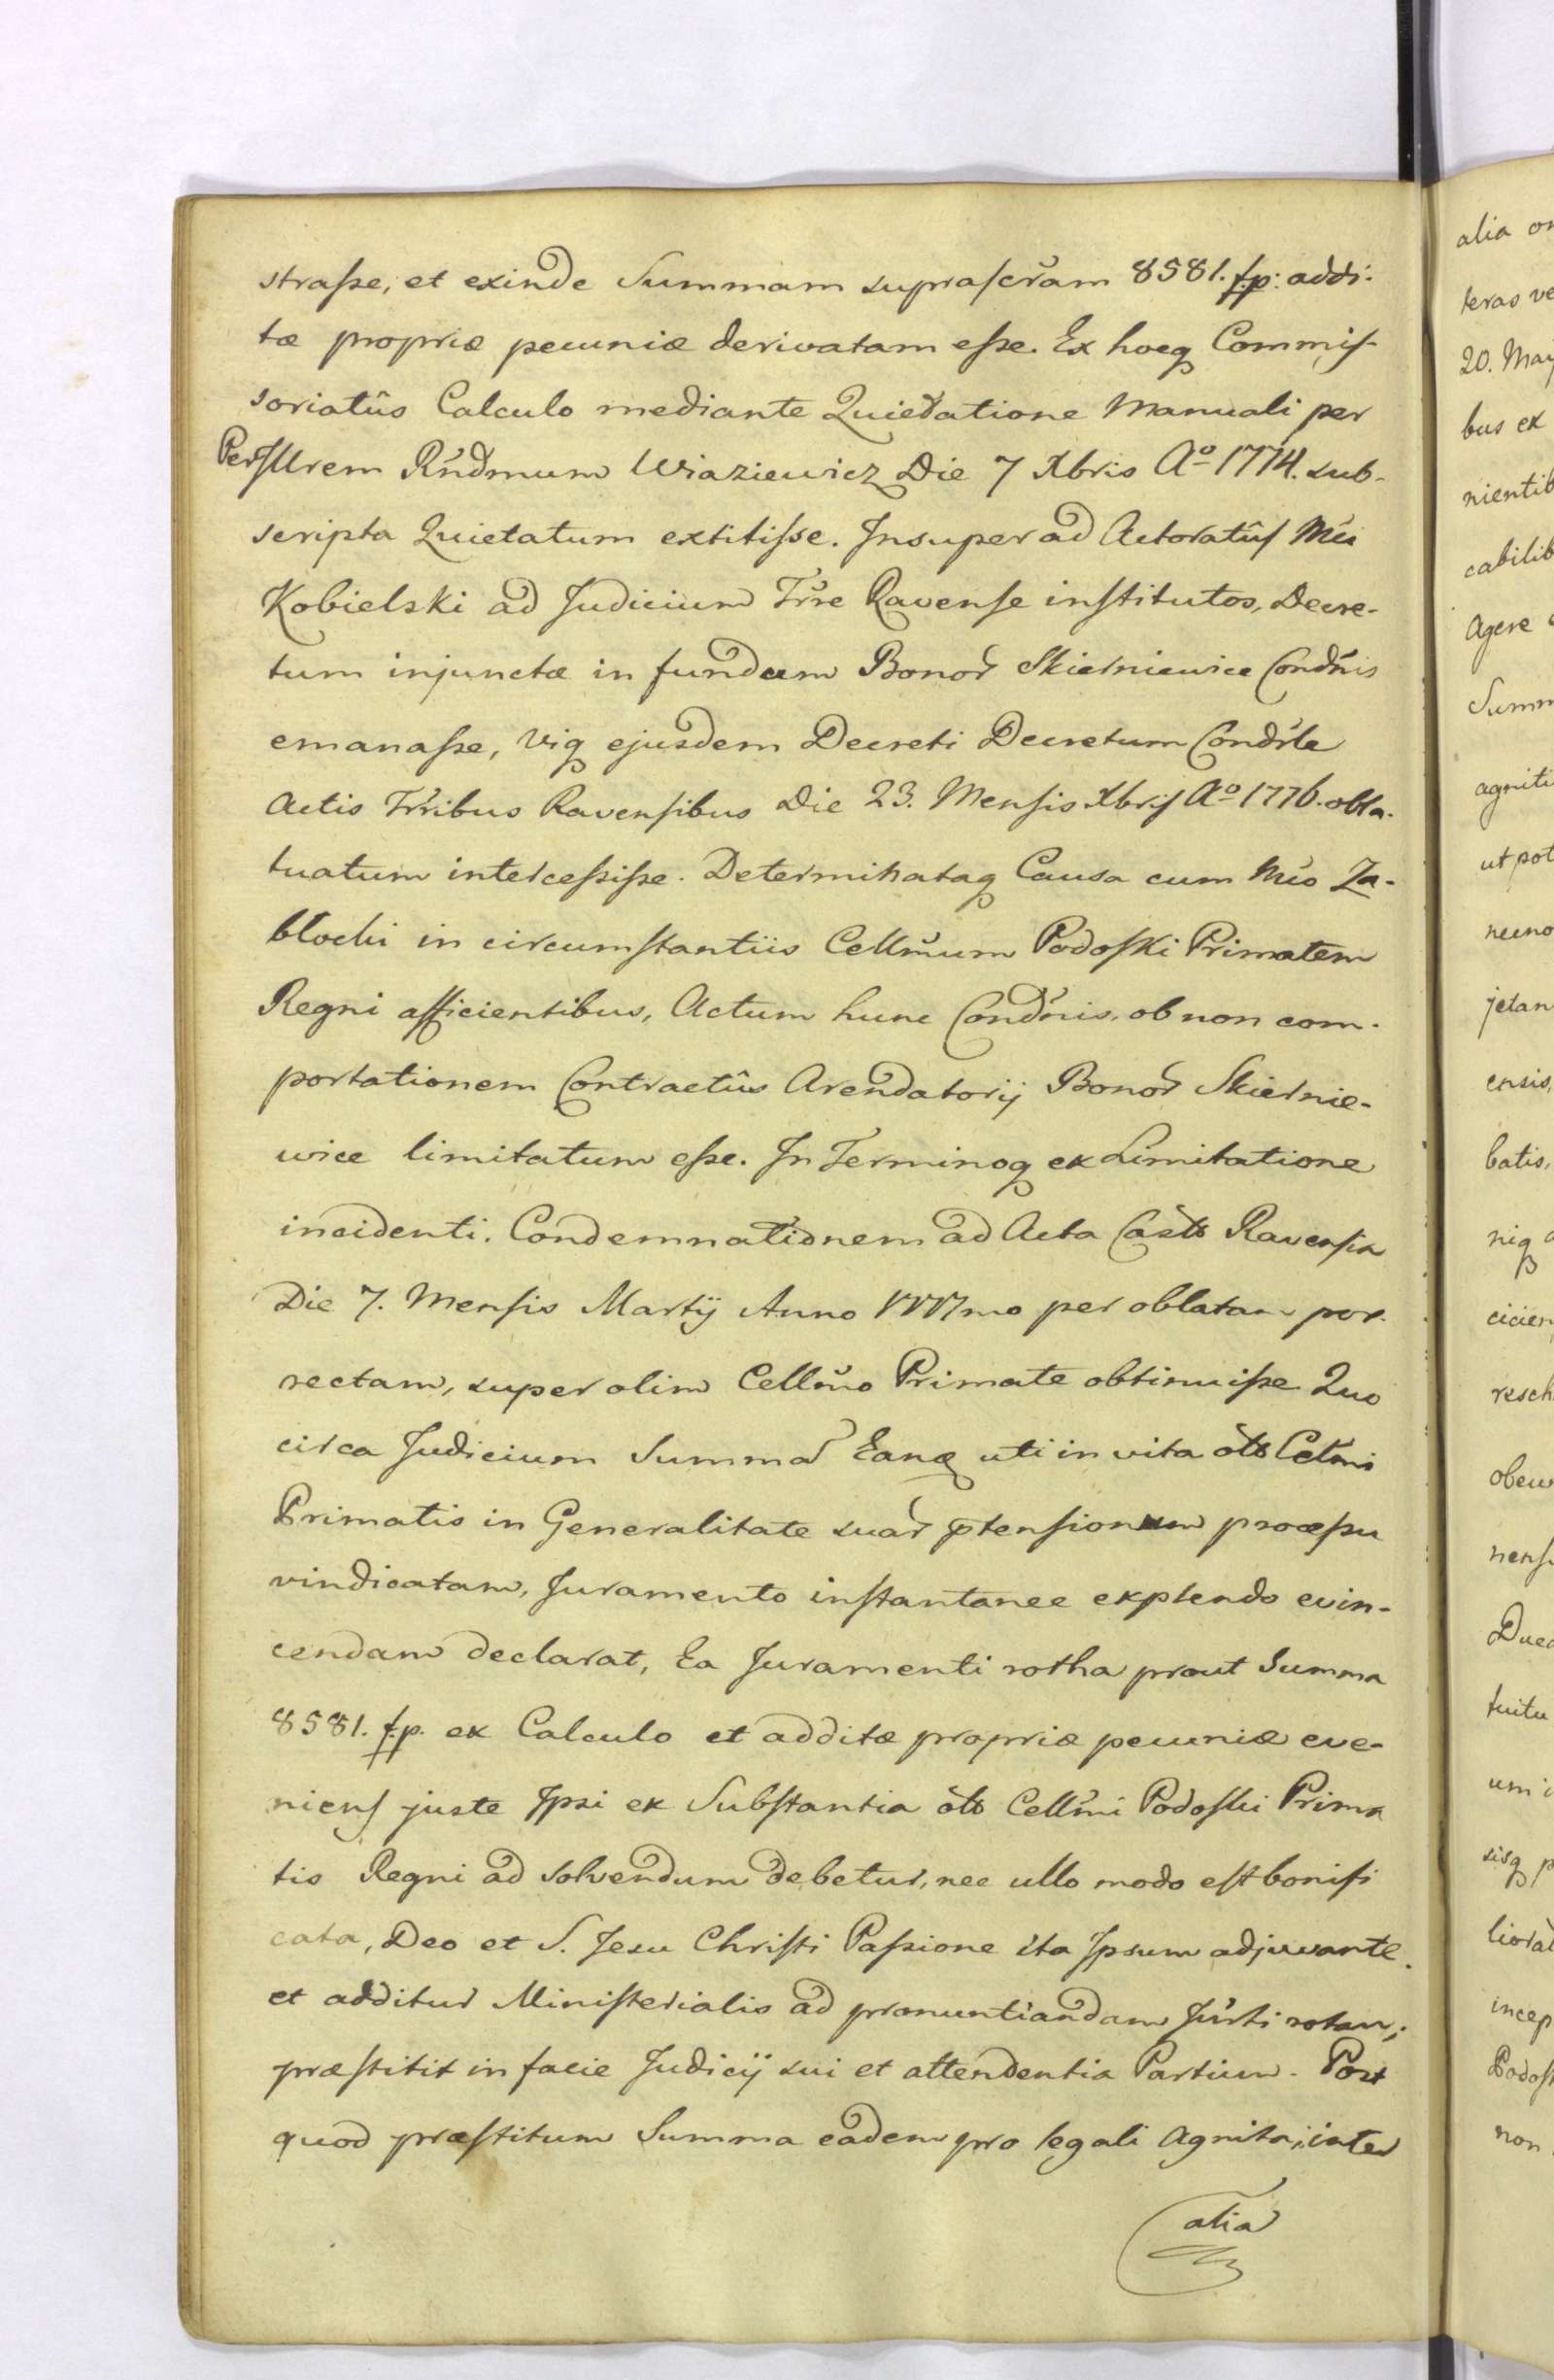 straſse, et exinde Summam supraſcr̃am 8581. f.p: addi-
tæ propriæ pecuniæ derivatam eſse. Ex hocq Commiſ-
soriatûs Calculo mediante Quietatione Manuali per
PerIllrem Rñdmum Wiaziewicz Die 7 Xbris Aº 1774. sub-
scripta Quietatum extitiſse. Insuper ad Actoratûſ Mci
Kobielski ad Judicium Trre Ravenſe inſtitutos, Decre-
tum injunctæ in fundum Bonor̃ Skierniewice Condñis
emanaſse, viq ejusdem Decreti Decretum Condr̃le
Actis Trribus Ravenſibus Die 23. Menſis Xbriſ Aº 1776. obla-
tuatum interceſsiſse. Determinataq Causa cum Mco Za-
blocki in circumſtantiis Cellm̃um Podoſki Primatem
Regni afficientibus, Actum hunc Condñis, ob non com-
portationem Contractûs Arendatorij Bonor̃ Skiernie-
wice limitatum eſse. In Terminoq ex Limitatione
incidenti. Condemnationem ad Acta Castr̃ Ravenſia
Die 7. Menſis Martij Anno 1777mo per oblatam por-
rectam, super olim Cellm̃o Primate obtinuiſse Quo
circa Judicium Summam Eanq uti in vita olĩ Cellm̃i
Primatis in Generalitate suar̃ ptenſionum proceſsu
vindicatam, Juramento inſtantanee explendo evin-
cendam declarat, Ea Juramenti rotha prout Summa
8581. f.p. ex Calculo et additæ propriæ pecuniæ eve-
nienſ juste Ipsi ex Subſtantia olĩ Cellm̃i Podoſki Prima
tis Regni ad solvendum debetur, nec ullo modo eſt bonifi
cata, Deo et S. Jesu Chriſti Paſsione ita Ipsum adjuvante.
et additur Miniſterialis ad pronuntiandam Jurti rotam;
præſtitit in facie Judicij sui et attendentia Partium. Post
quod præſtitum Summa eadem pro legali Agnita; inter
alia
alia
teras
20. Maij
bus ex
cabilib
Agere
Summ
agniti
ut pot
jetan
ensis,
batis,
niq
incep
Podoſ
non